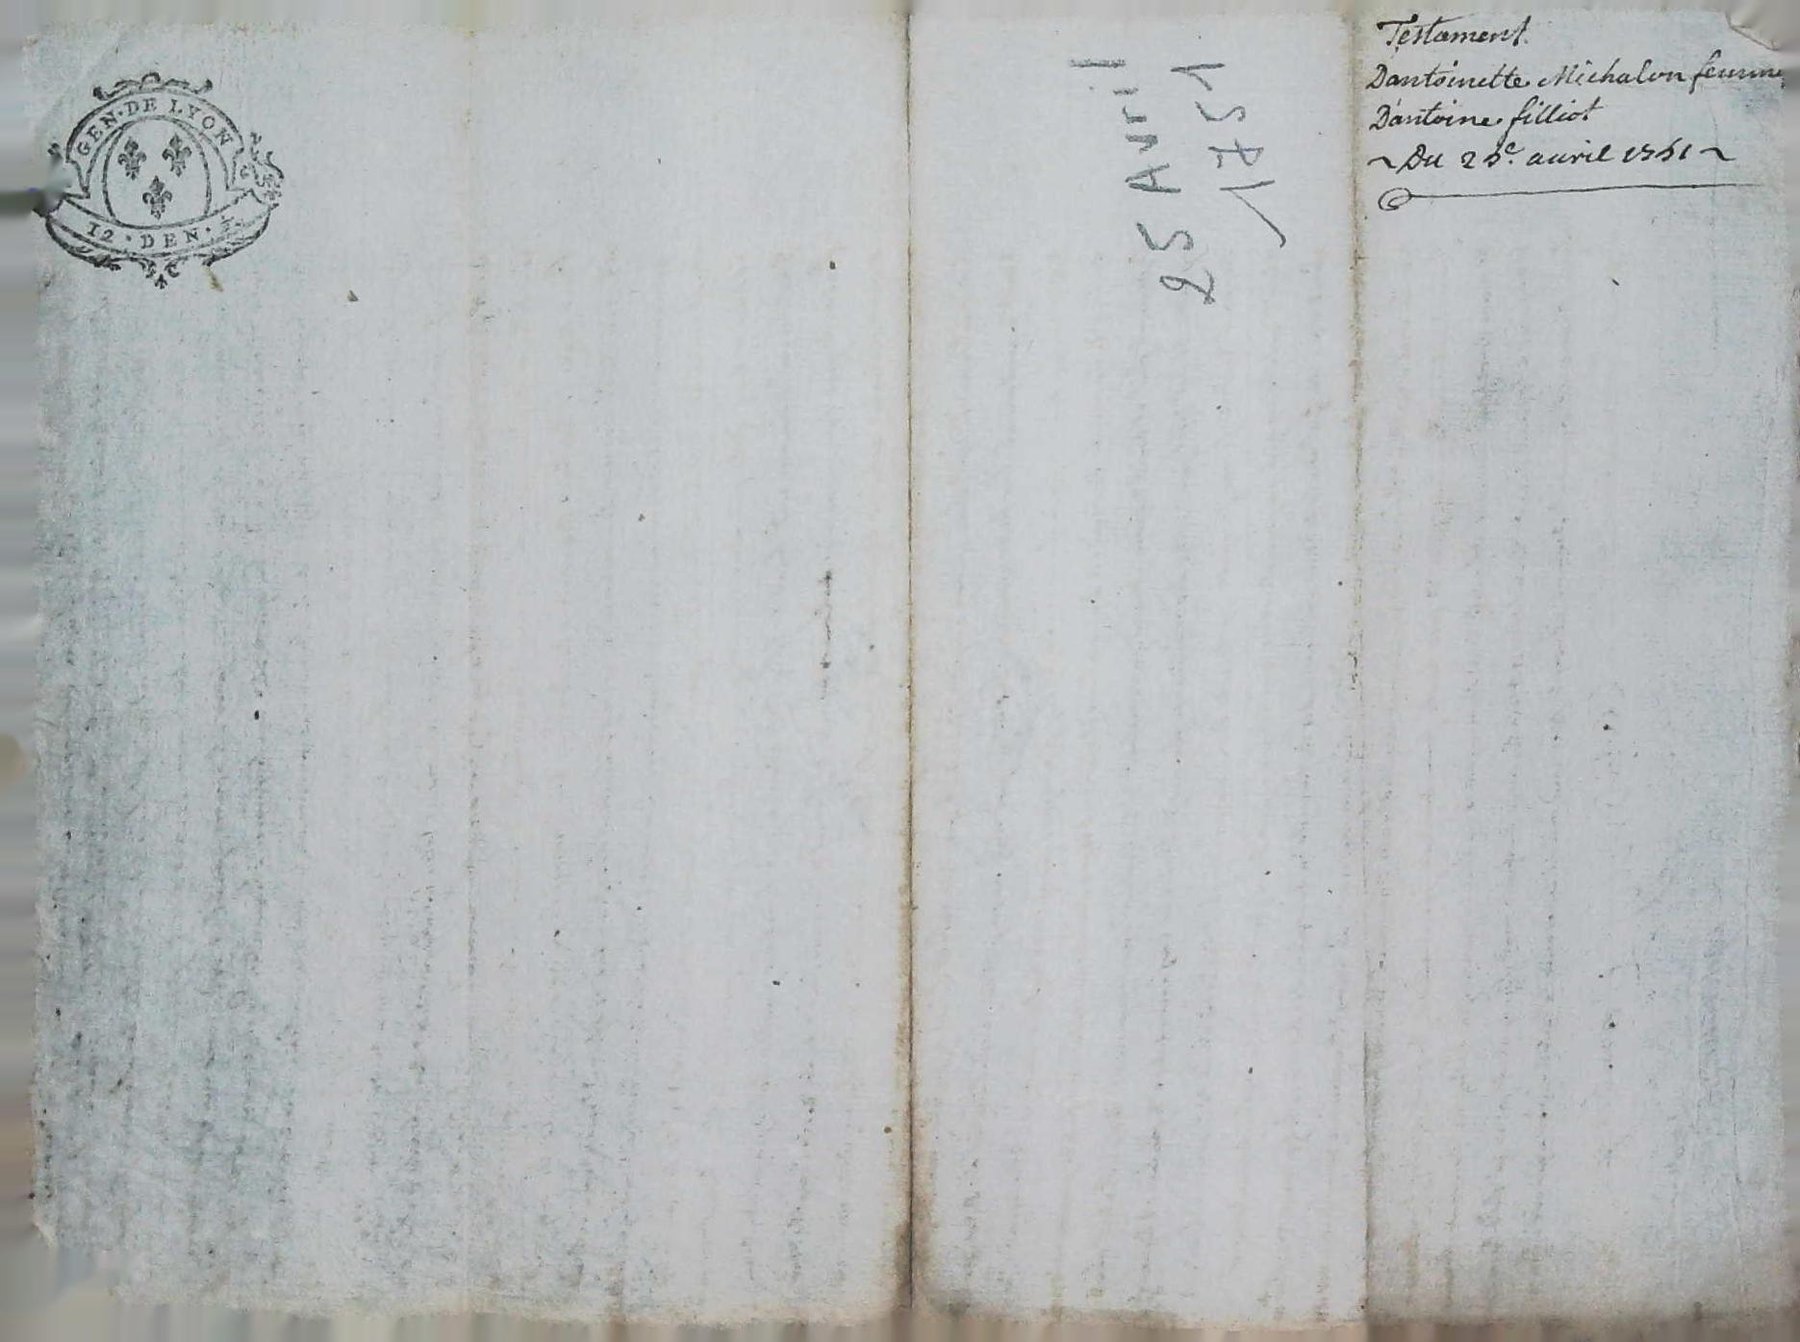 GEN·DE LYON
12·DEN·
25 Avril
1751
Testament
Dantoinette Michalon femme
D'antoine filliot
~ Du 25e. avril 1751 ~